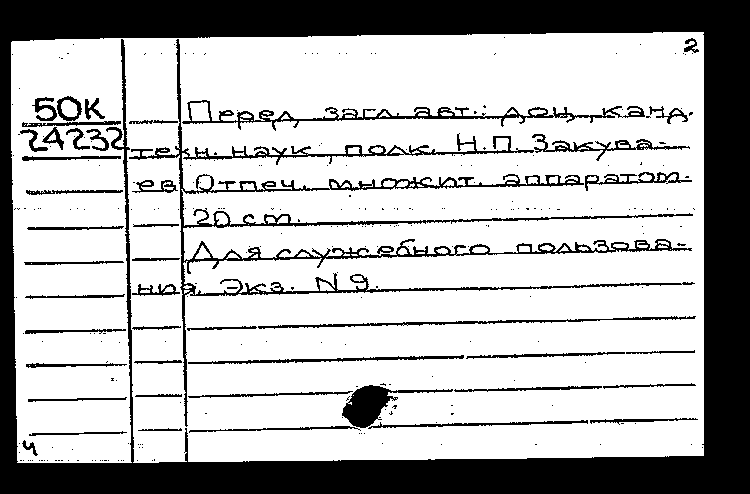 2
50К
24232
Перед загл. авт.: доц., канд.
техн. наук, полк. Н.П. Закува-
ев. Отпеч. множит. аппаратом.
20 cm.
Для служебного пользова-
ния. Экз. N 9.
ч